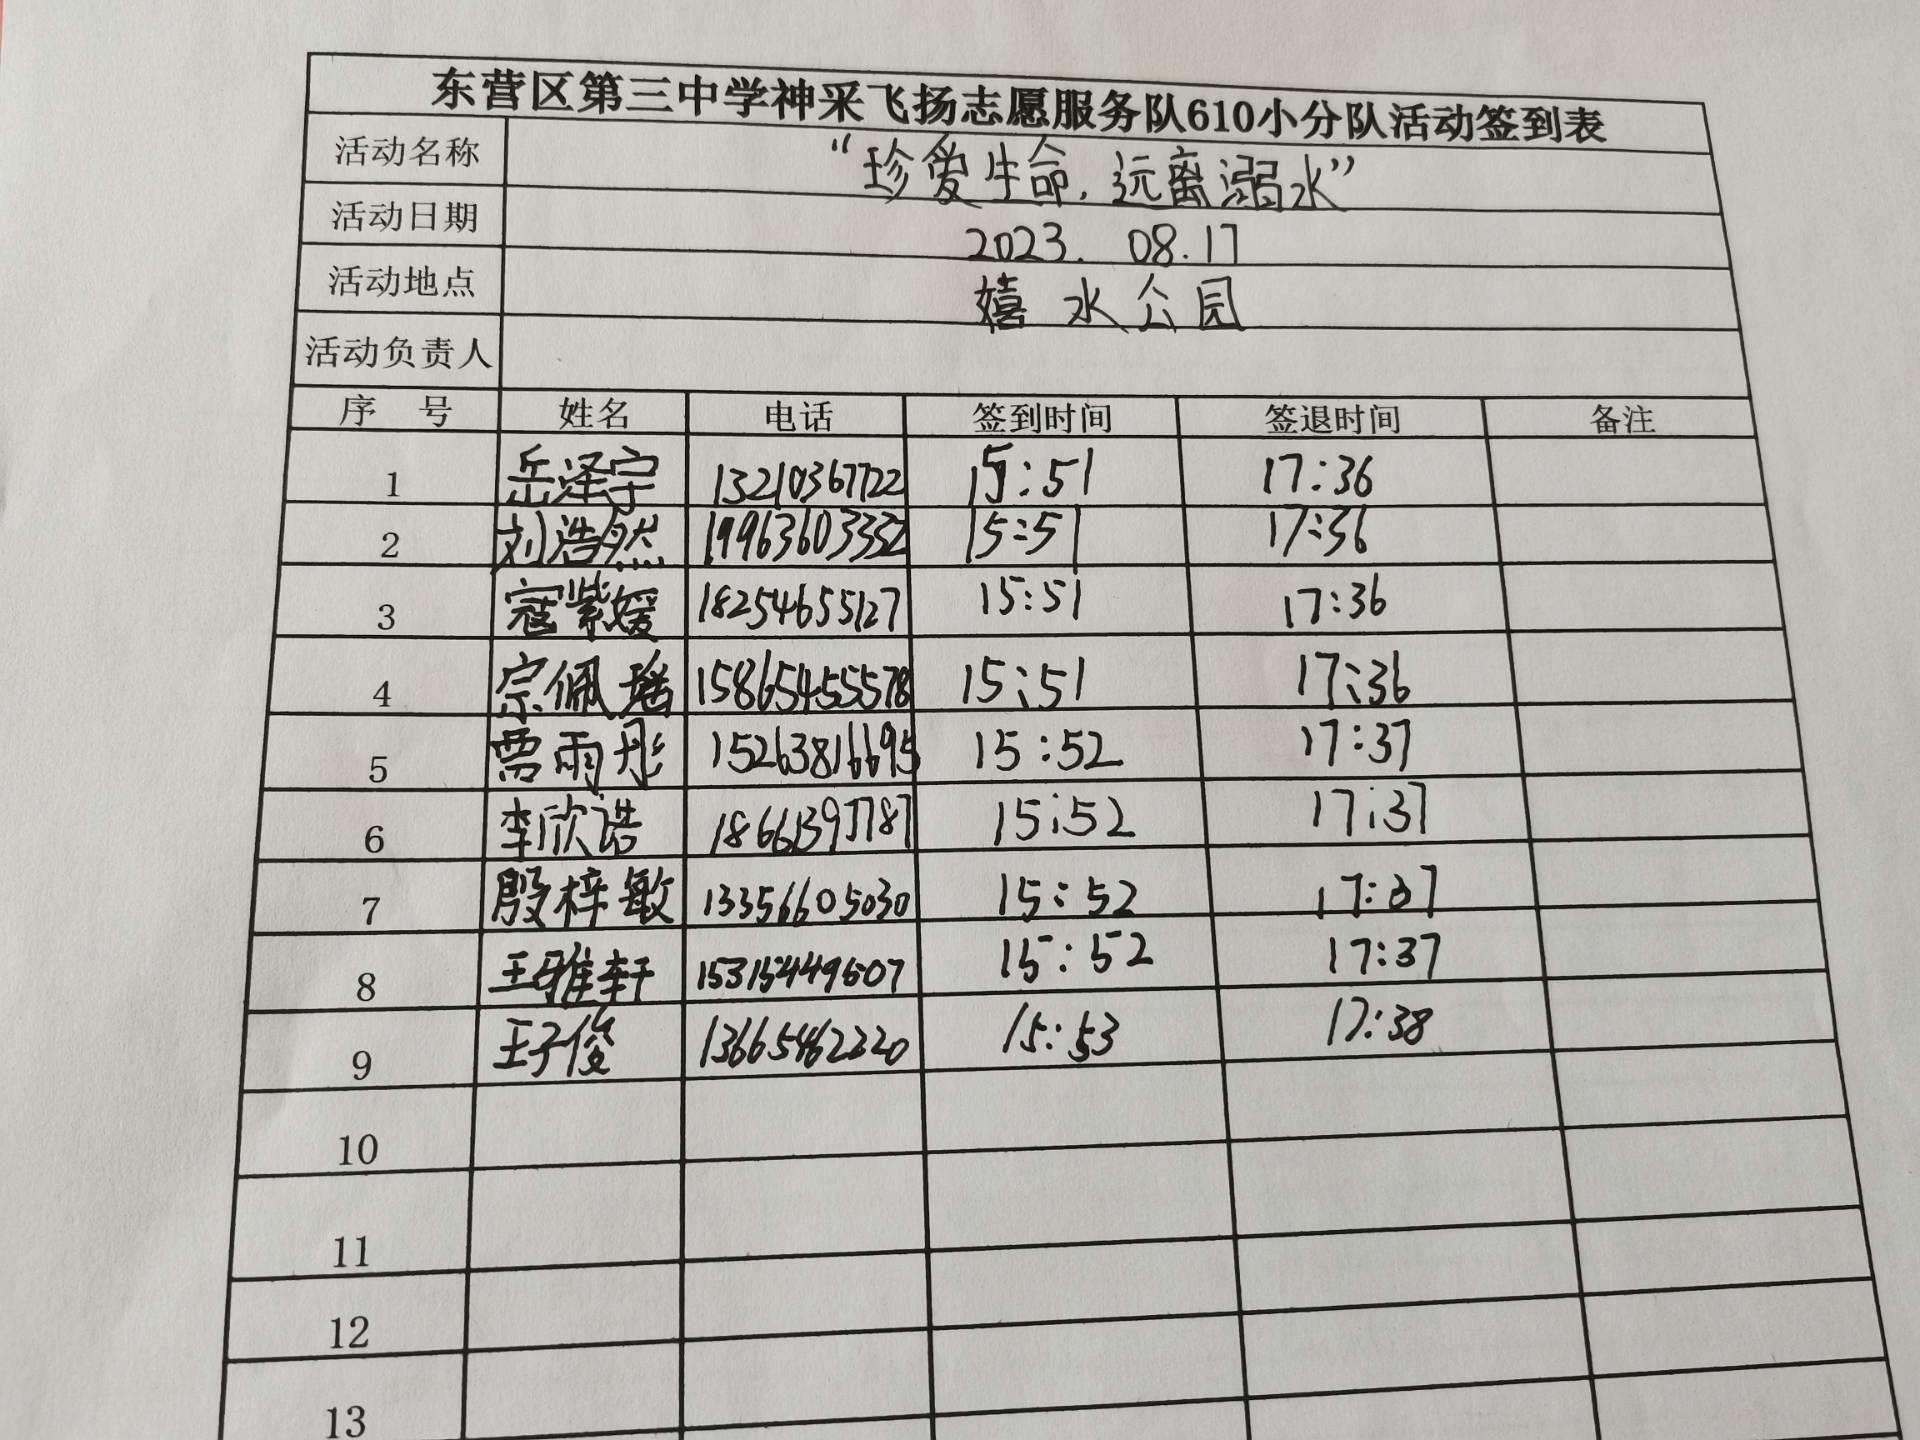 东营区第三中学神采飞扬志愿服务队610小分队活动签到表
活动名称 “珍爱生命,远离溺水”
活动日期 2023. 08.17
活动地点 嬉水公园
活动负责人
序 号 姓名 电话 签到时间 签退时间 备注
1 岳泽宇 13210367722 15:51 17:36
2 刘浩然 19963603332 15:51 17:36
3 寇紫媛 18254655127 15:51 17:36
4 宗佩瑶 15865455578 15:51 17:36
5 贾雨彤 15263816695 15:52 17:37
6 李欣诺 18661397787 15:52 17:37
7 殷梓敏 13356605030 15:52 17:37
8 王雅轩 15315449607 15:52 17:37
9 王子俊 13665462220 15:53 17:38
10
11
12
13